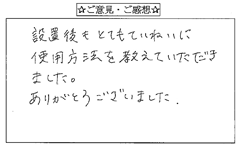 ☆ご意見・ご感想☆
設置後もとてもていねいに
使用方法を教えていただき
ました。
ありがとうございました.